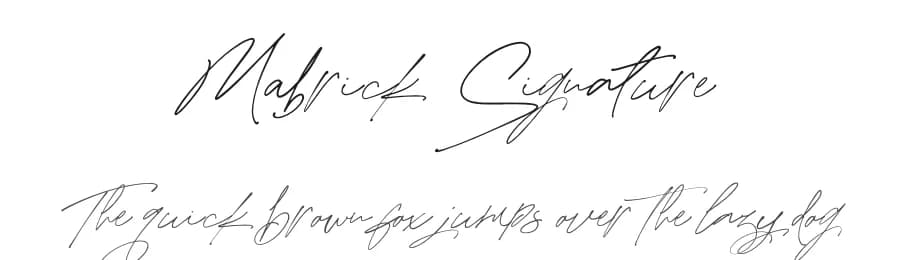 Mabrick Signature
The quick brown fox jumps over the lazy dog